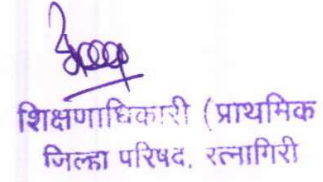 शिक्षणाधिकारी (प्राथमिक
जिल्हा परिषद, रत्नागिरी